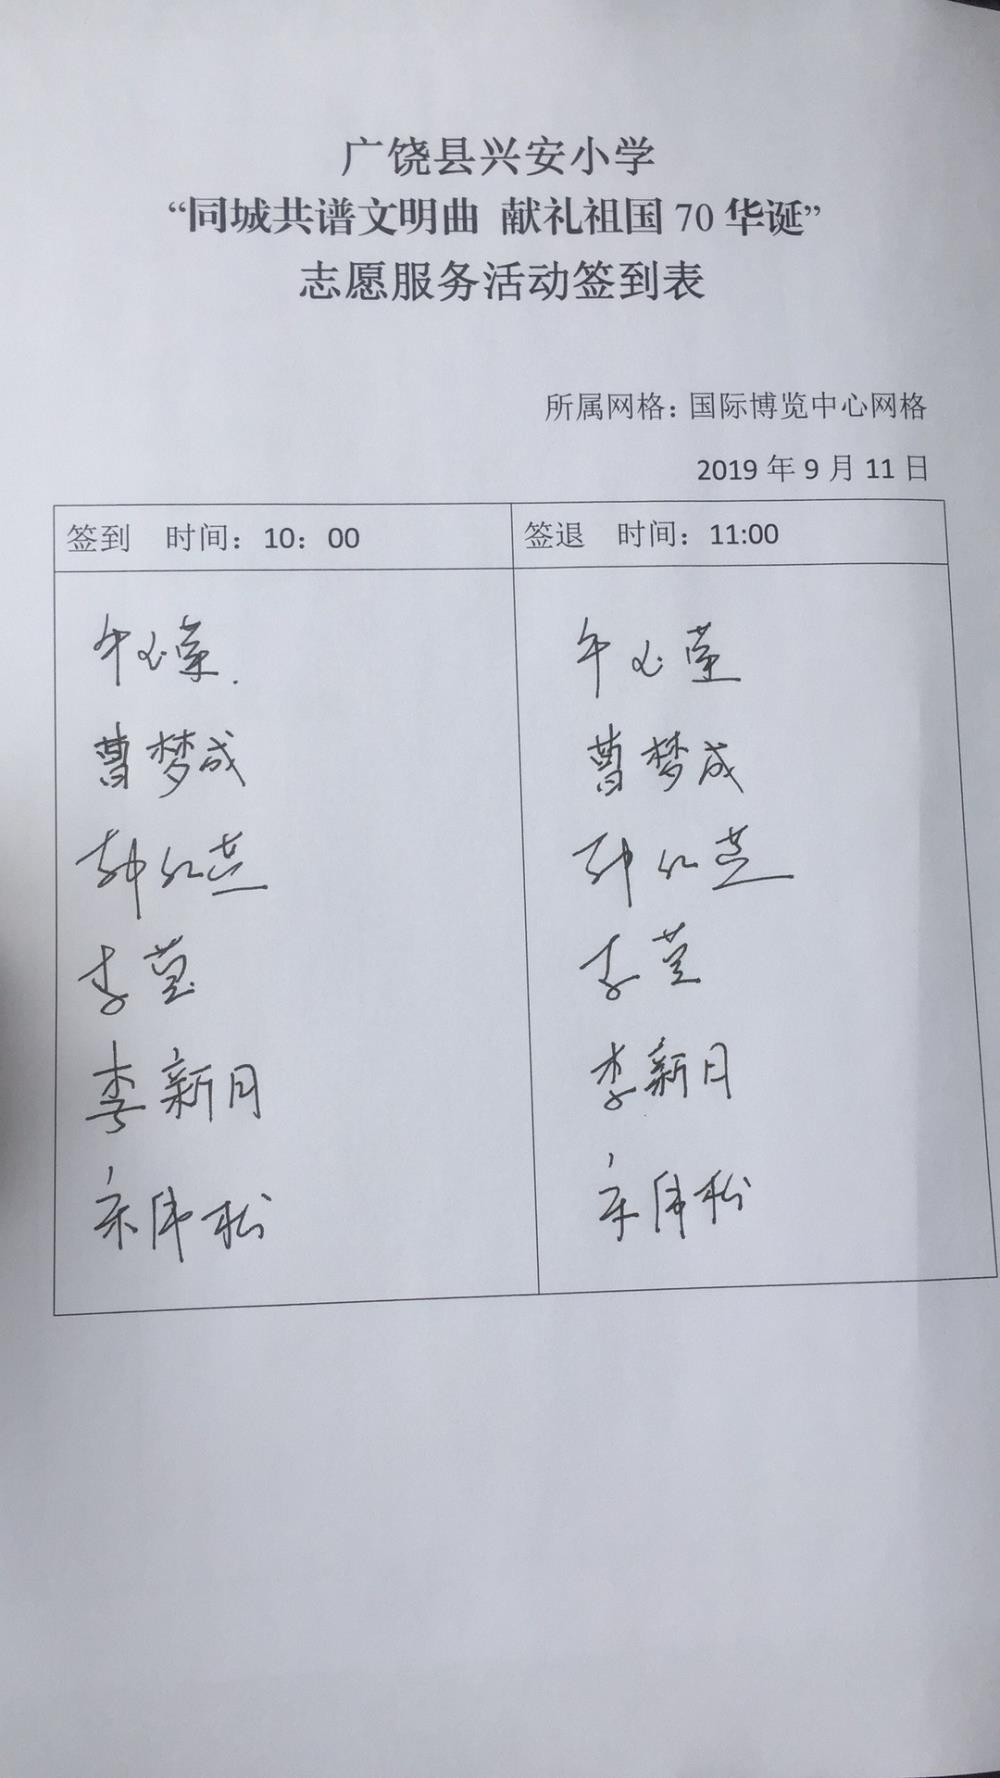 广饶县兴安小学
“同城共谱文明曲 献礼祖国 70 华诞”
志愿服务活动签到表
所属网格：国际博览中心网格
2019 年 9 月 11 日
签到 时间：10：00
签退 时间：11:00
曹梦成
曹梦成
李莹
李莹
李新月
李新月
宋伟松
宋伟松